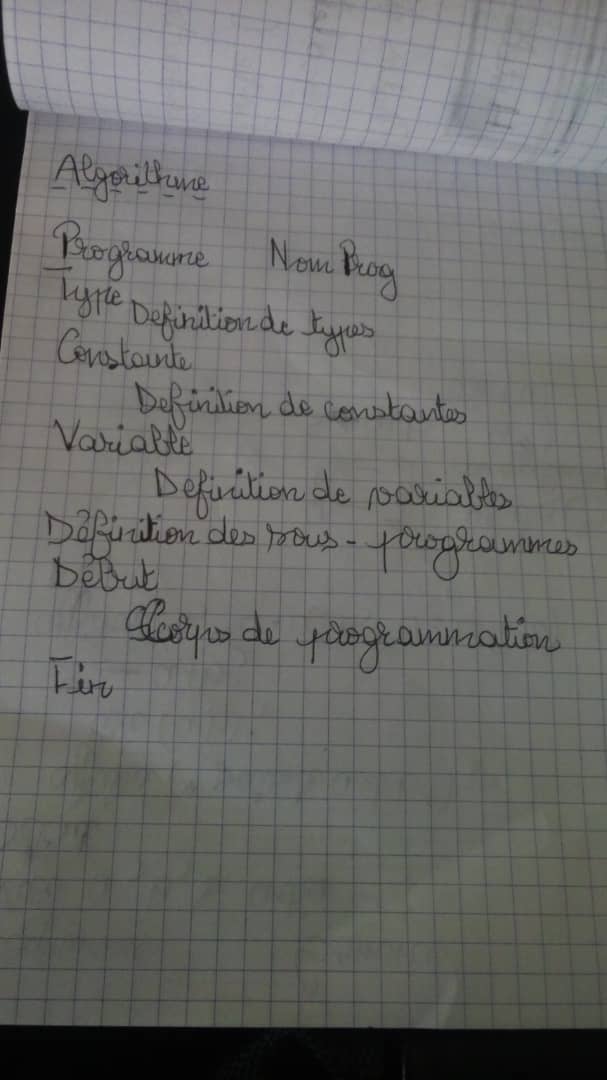 Algorithme
Programme Nom Prog
Type
Definition de types
Constante
Definition de constantes
Variable
Definition de variables
Définition des sous-programmes
Début
corps de programmation
Fin